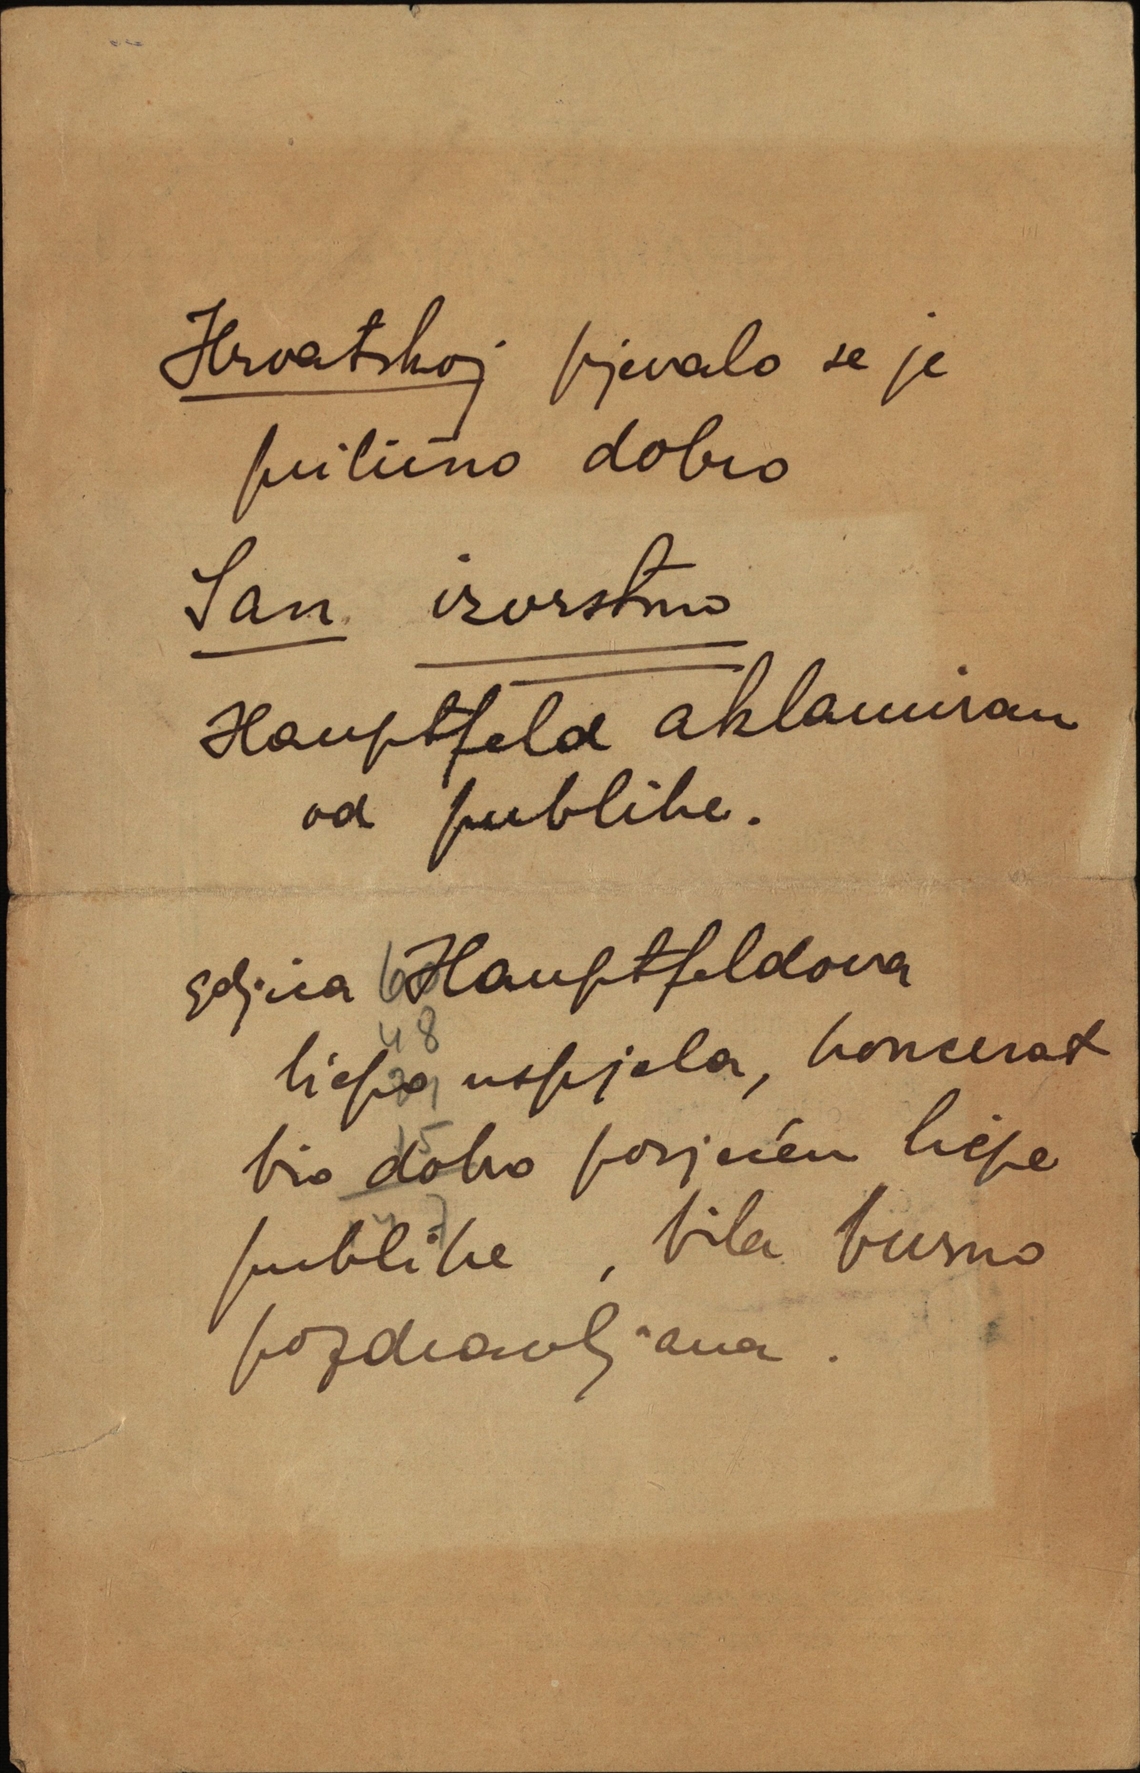 Hrvatskoj pjevalo se je
prilično dobro
San izvrstno
Hauptfeld aklamiran
od publike.
gdjica Hauptfeldova
liepo uspjela, koncerat
bio dobro posjećen liepe
publike , bila burno
pozdravljana .
48
15